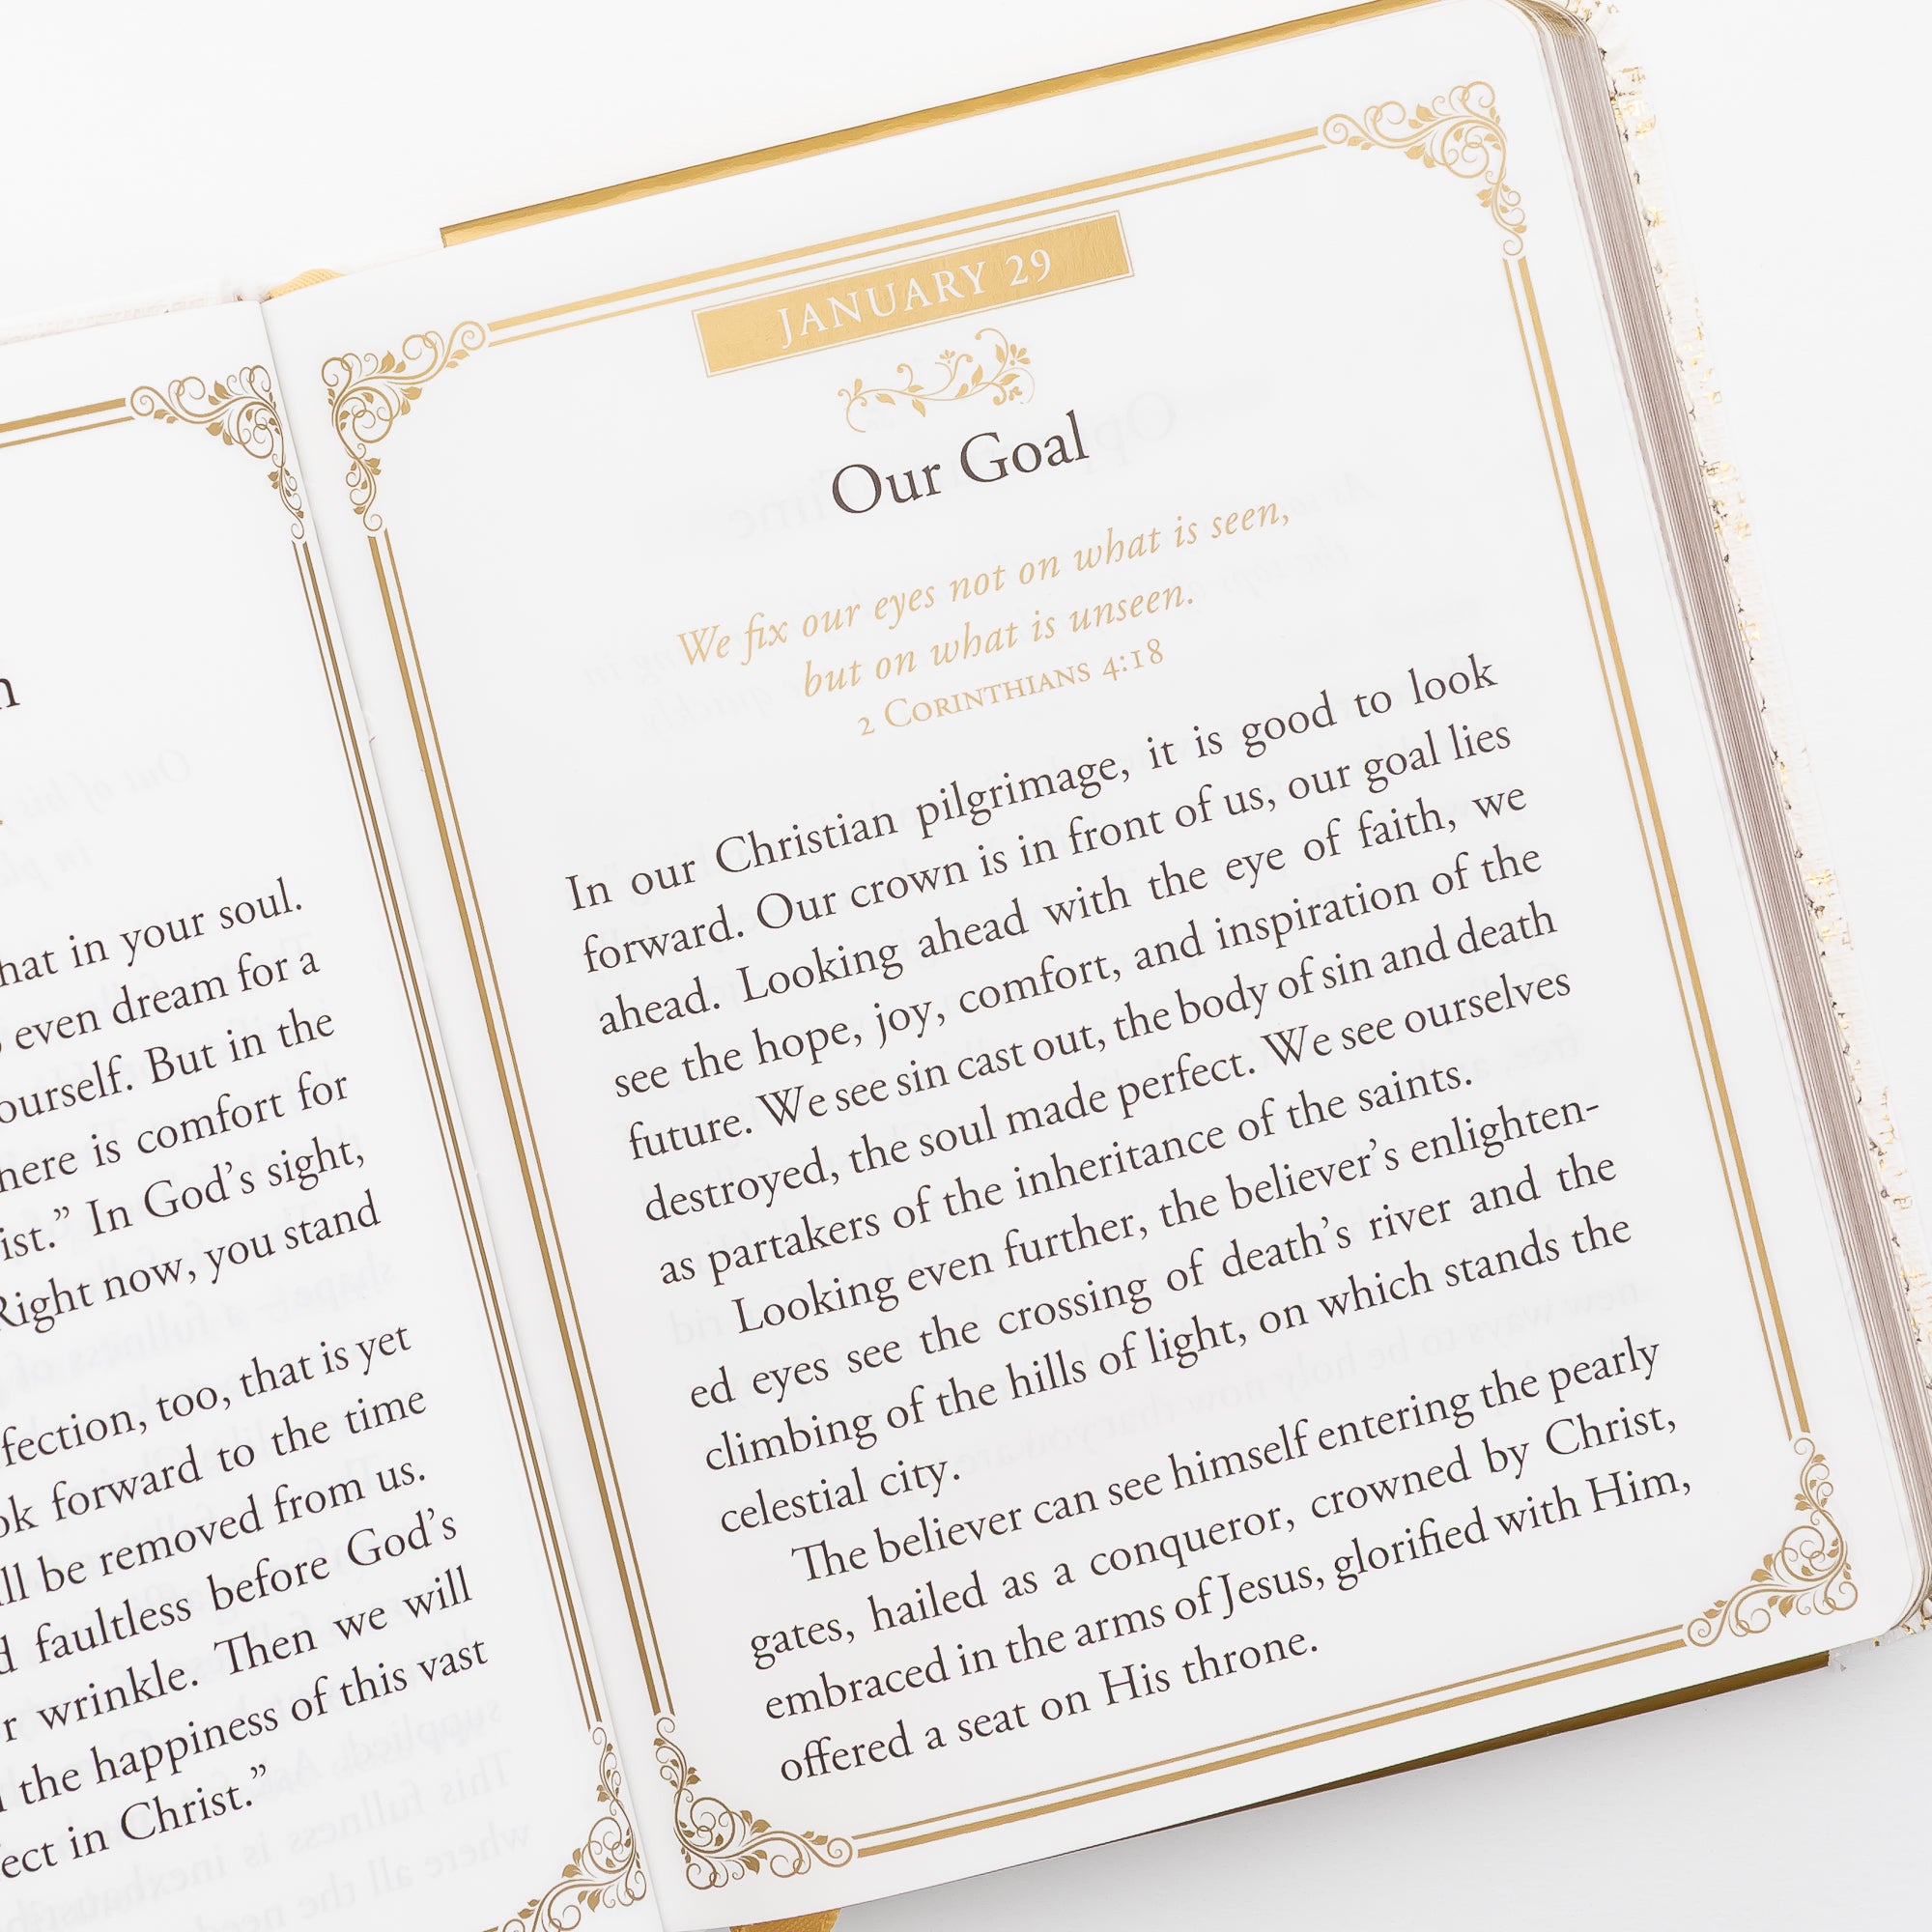 hat in your soul.
even dream for a
ourself. But in the
here is comfort for
ist.” In God’s sight,
Right now, you stand
fection, too, that is yet
ok forward to the time
ll be removed from us.
d faultless before God’s
r wrinkle. Then we will
the happiness of this vast
ect in Christ.”
JANUARY 29
Our Goal
We fix our eyes not on what is seen,
but on what is unseen.
2 Corinthians 4:18
In our Christian pilgrimage, it is good to look
forward. Our crown is in front of us, our goal lies
ahead. Looking ahead with the eye of faith, we
see the hope, joy, comfort, and inspiration of the
future. We see sin cast out, the body of sin and death
destroyed, the soul made perfect. We see ourselves
as partakers of the inheritance of the saints.
Looking even further, the believer’s enlighten-
ed eyes see the crossing of death’s river and the
climbing of the hills of light, on which stands the
celestial city.
The believer can see himself entering the pearly
gates, hailed as a conqueror, crowned by Christ,
embraced in the arms of Jesus, glorified with Him,
offered a seat on His throne.